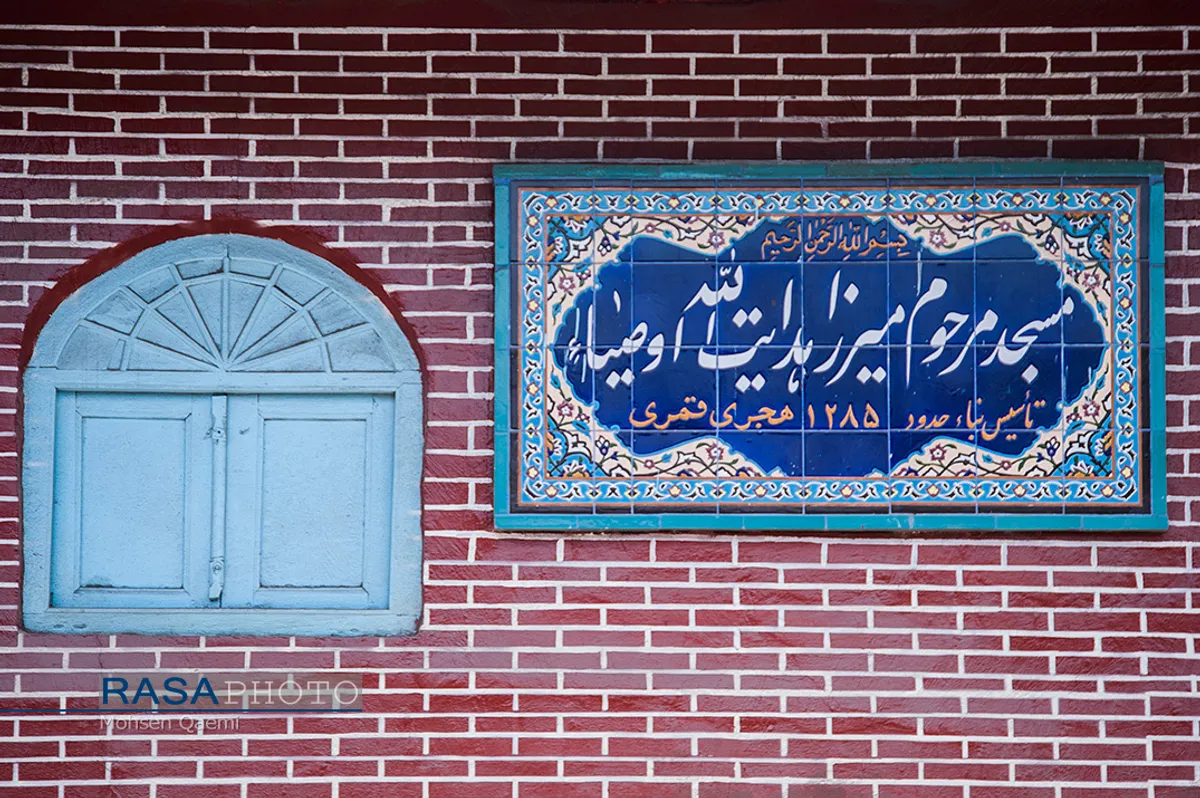 بسم الله الرحمن الرحیم
مسجد مرحوم میرزا هدایت الله اوصیاء
تأسیس بناء حدود ۱۲۸۵ هجری قمری
RASA PHOTO
Mohsen Qaemi